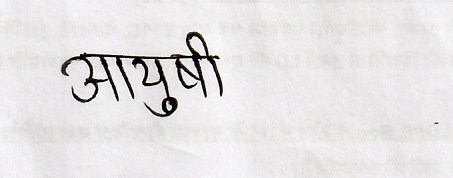 आयुषी